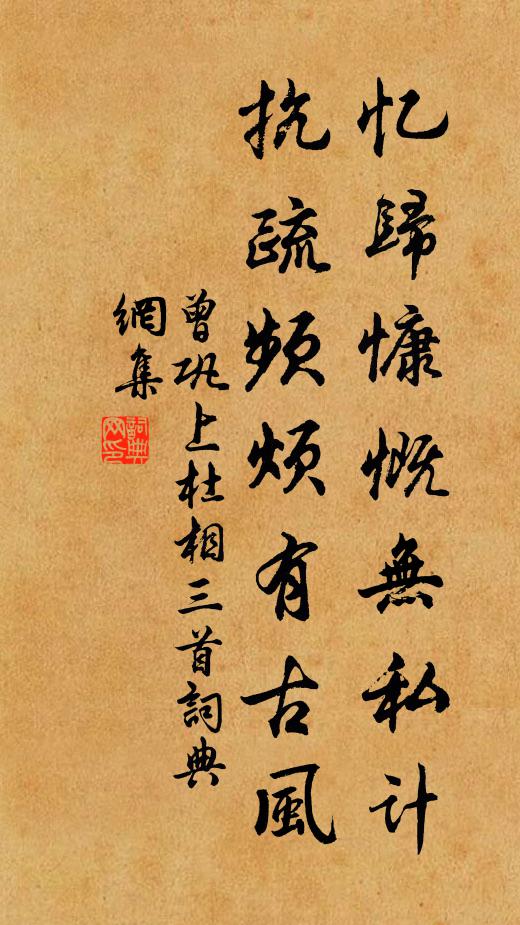 忆歸慷慨無私计
抗疏频烦有古風
曾巩上杜相三首詞典
網集
詞典
网印